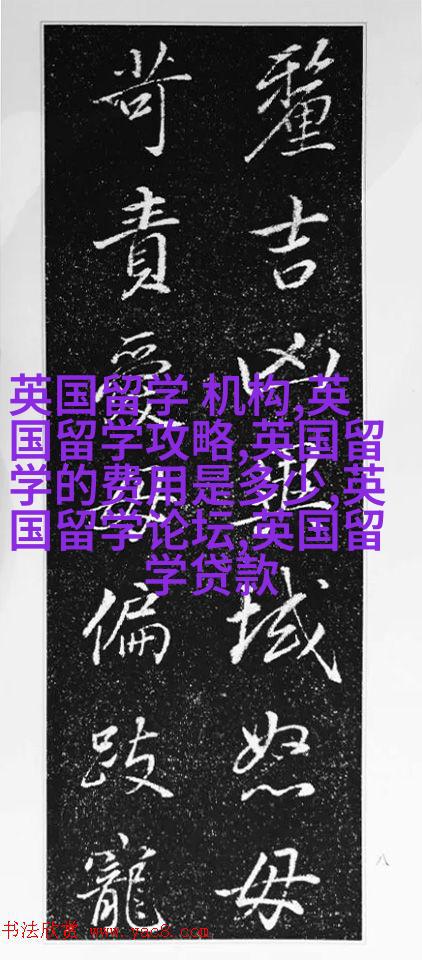 釐吉凶域怒毋
苛責愛毋偏跂寵
八
英国留学 机构,英
国留学攻略,英国留
学的费用是多少,英
国留学论坛,英国留
学贷款
书法欣赏 www.yac8.com